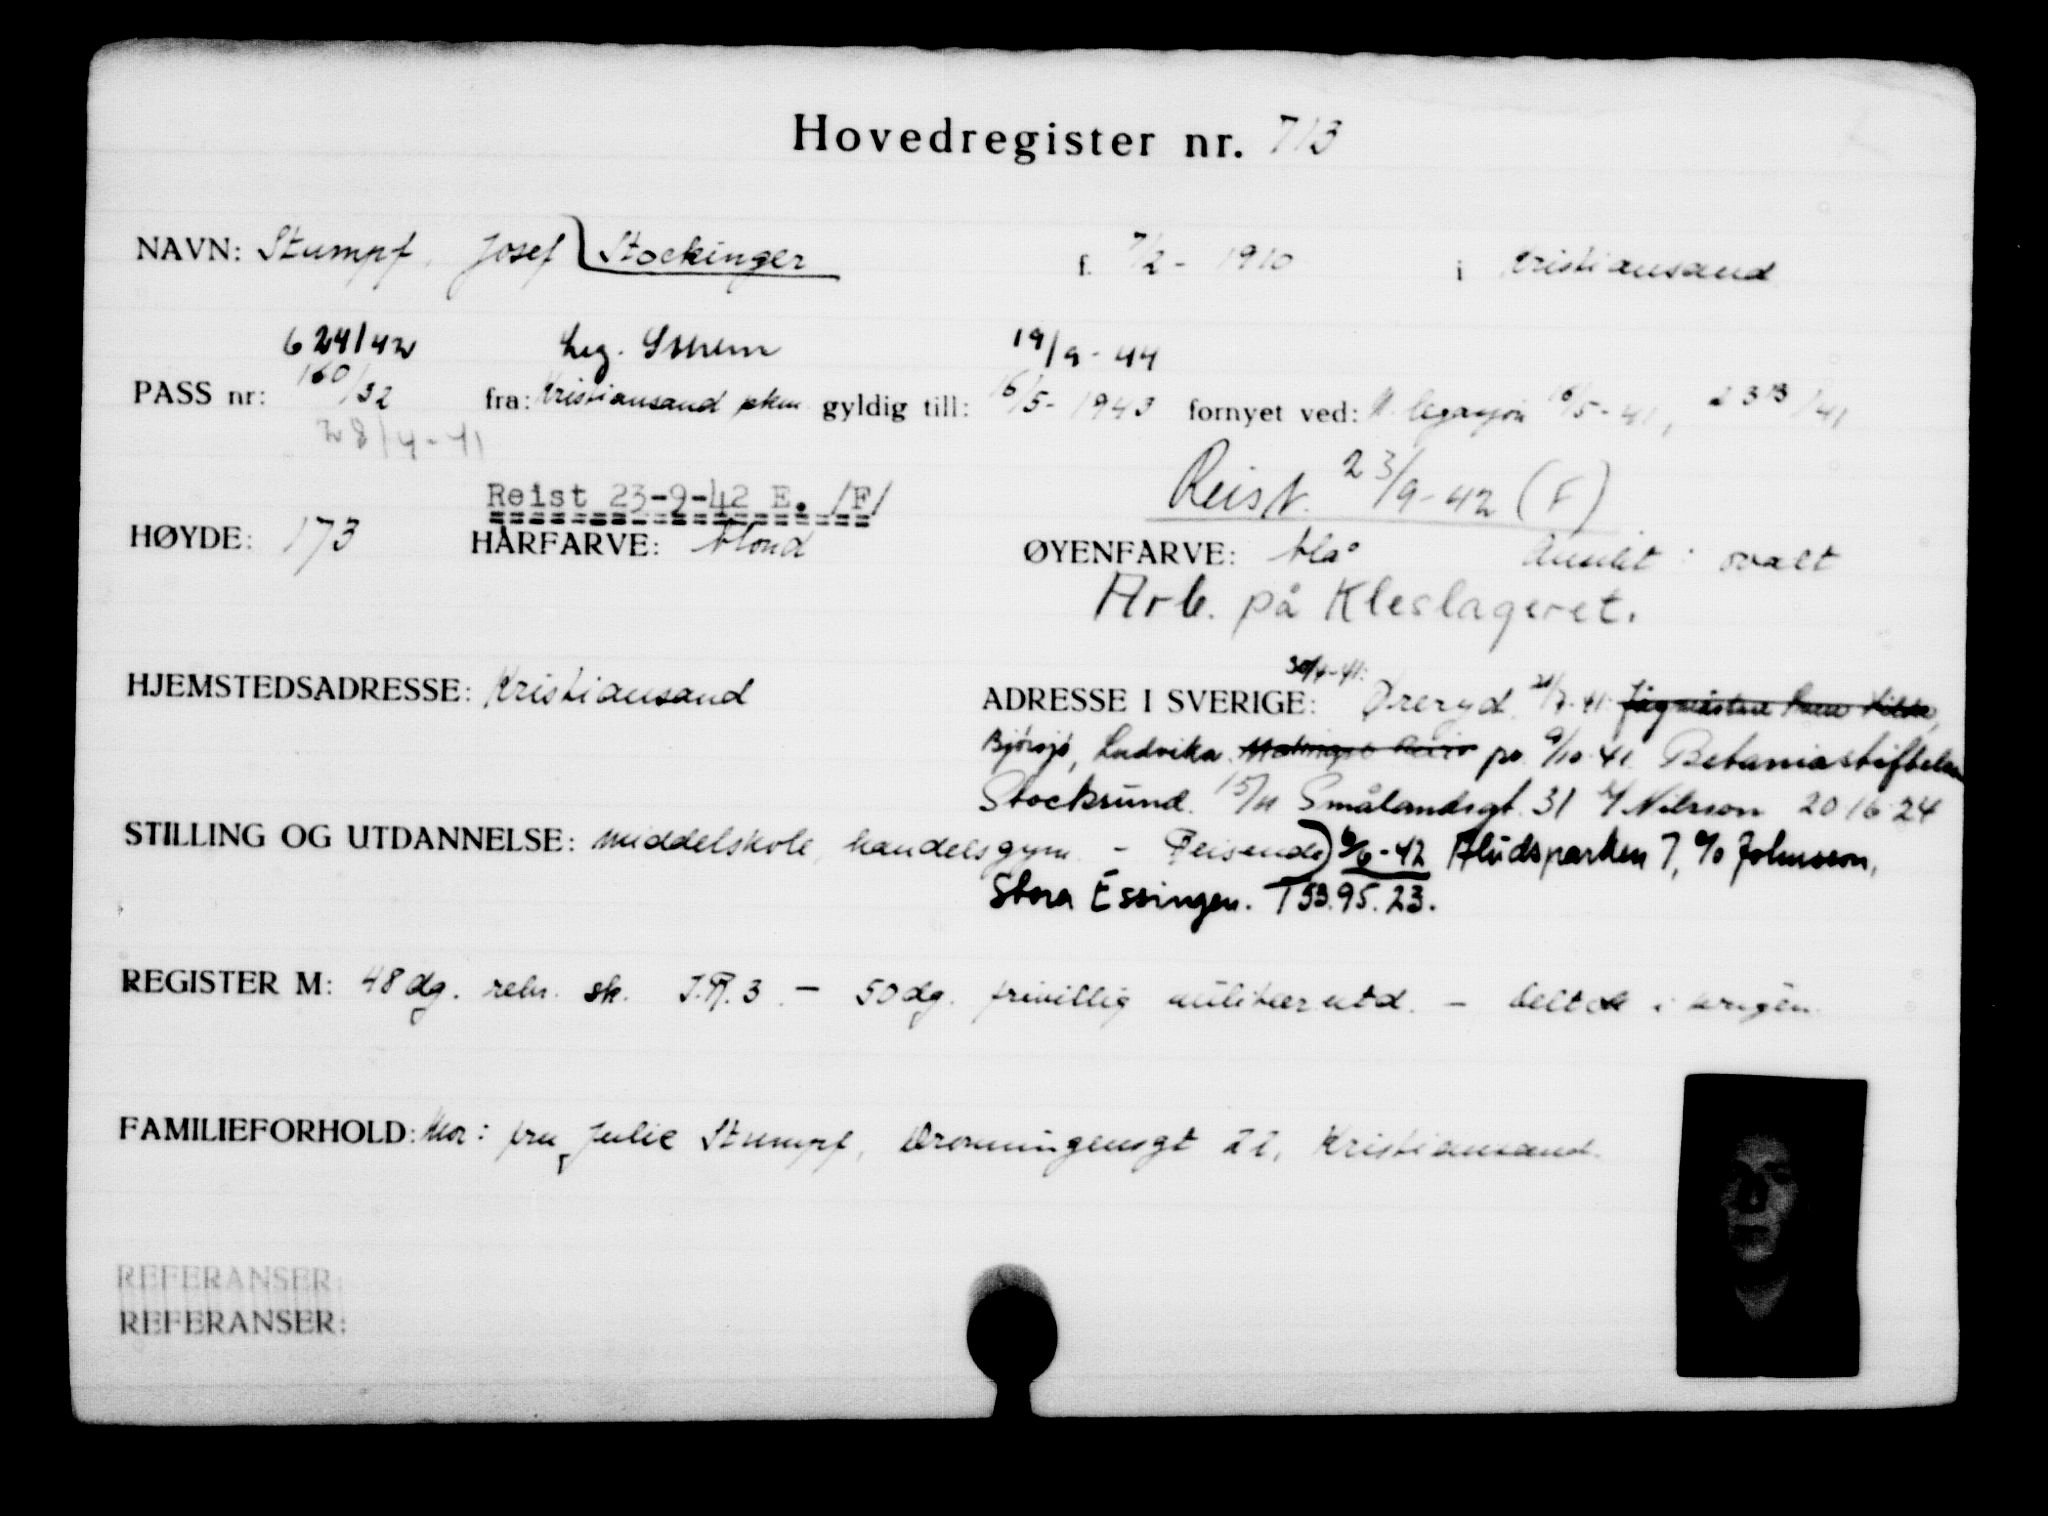 Hovedregister nr. 713
NAVN: Stumpf, Josef Stockinger f. 7/2 - 1910 i Kristiansand
624/42 Leg. Sthlm 19/9 - 44
PASS nr: 160/32 fra: Kristiansand pkm gyldig till: 16/5 - 1943 fornyet ved: N. legasjon 16/5 - 41,
28/4 - 41
Reist 23-9-42 E. /F/ Reist. 23/9 - 42 (F)
HØYDE: 173 HÅRFARVE: blond ØYENFARVE: blå Ansikt: ovalt
Arb. på Kleslageret.
30/4-41:
HJEMSTEDSADRESSE: Kristiansand ADRESSE I SVERIGE: Øreryd.
Bjørsjø, Ludvika 9/10-41. Betaniastiftelsen
Stocksund. 15/11 Smålandsgt. 31 c/o Nilsson 20 16 24
STILLING OG UTDANNELSE: middelskole, handelsgym. - Reisende) 6/6 - 42 Fludsparken 7, c/o Johnsson,
Stora Essingen. T 53.95.23.
REGISTER M: 48 dg. rekr. sk. I.R. 3. - 50 dg. frivillig militær utd. - Deltok i krigen.
FAMILIEFORHOLD: Mor: fru Julie Stumpf, Dronningensgt 22, Kristiansand.
REFERANSER:
REFERANSER: